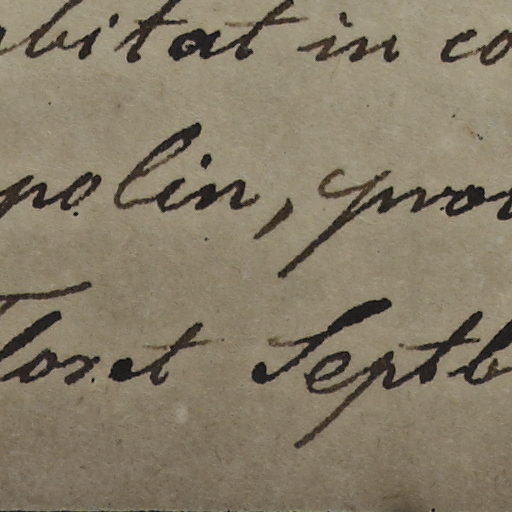 abitat in co
polin, prov
Floret Septb